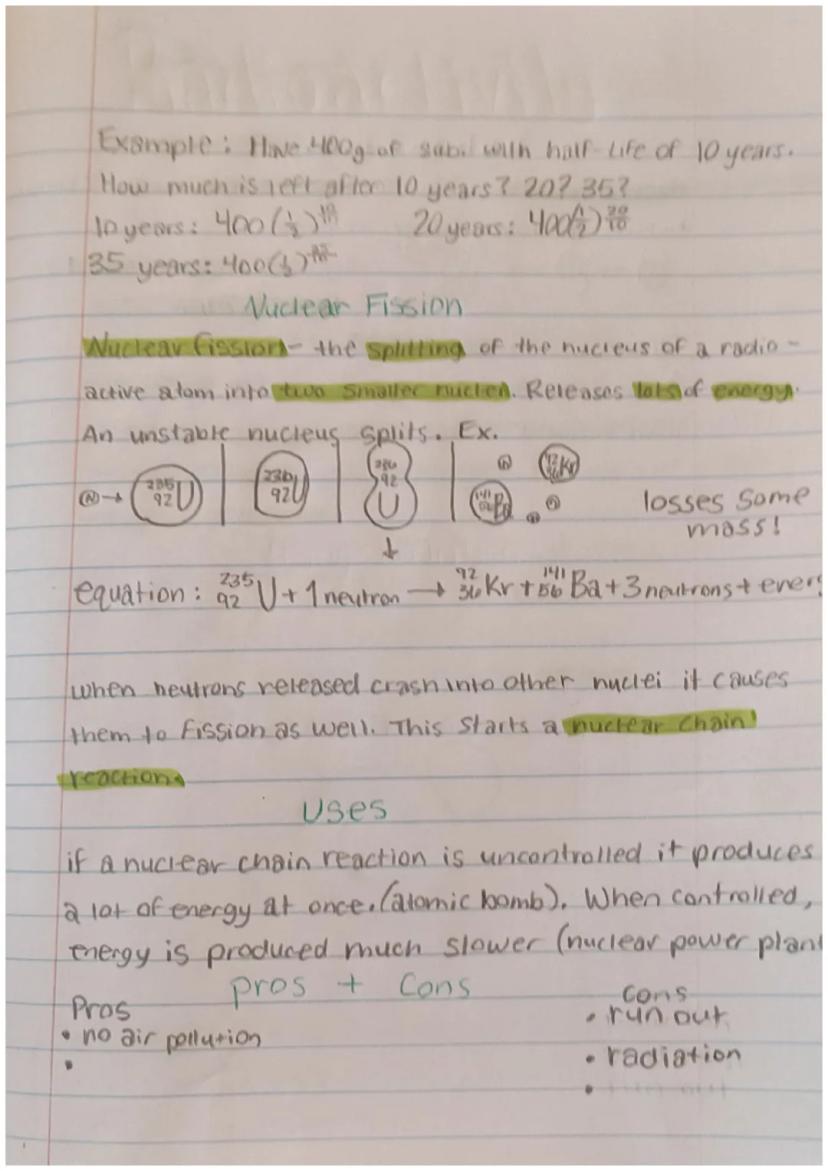 Example: Have 400g of sub. with half-life of 10 years.
How much is left after 10 years? 20? 35?
10 years: 400(½)^10/10    20 years: 400(½)^20/10
35 years: 400(½)
Nuclear Fission
Nuclear fission- the splitting of the nucleus of a radio-
active atom into two smaller nuclei. Releases lots of energy.
An unstable nucleus splits. Ex.
n → 235 92 U | 236 92 U | 236 92 U | n 92 36 Kr
141 56 Ba n n
losses some
mass!
↓
equation: 235 92 U + 1 neutron → 92 36 Kr + 141 56 Ba + 3 neutrons + ener
when neutrons released crash into other nuclei it causes
them to fission as well. This starts a nuclear chain
reaction.
Uses
if a nuclear chain reaction is uncontrolled it produces
a lot of energy at once. (atomic bomb). When controlled,
energy is produced much slower (nuclear power plant
pros + cons
Pros
• no air pollution
•
cons
• run out
• radiation
•